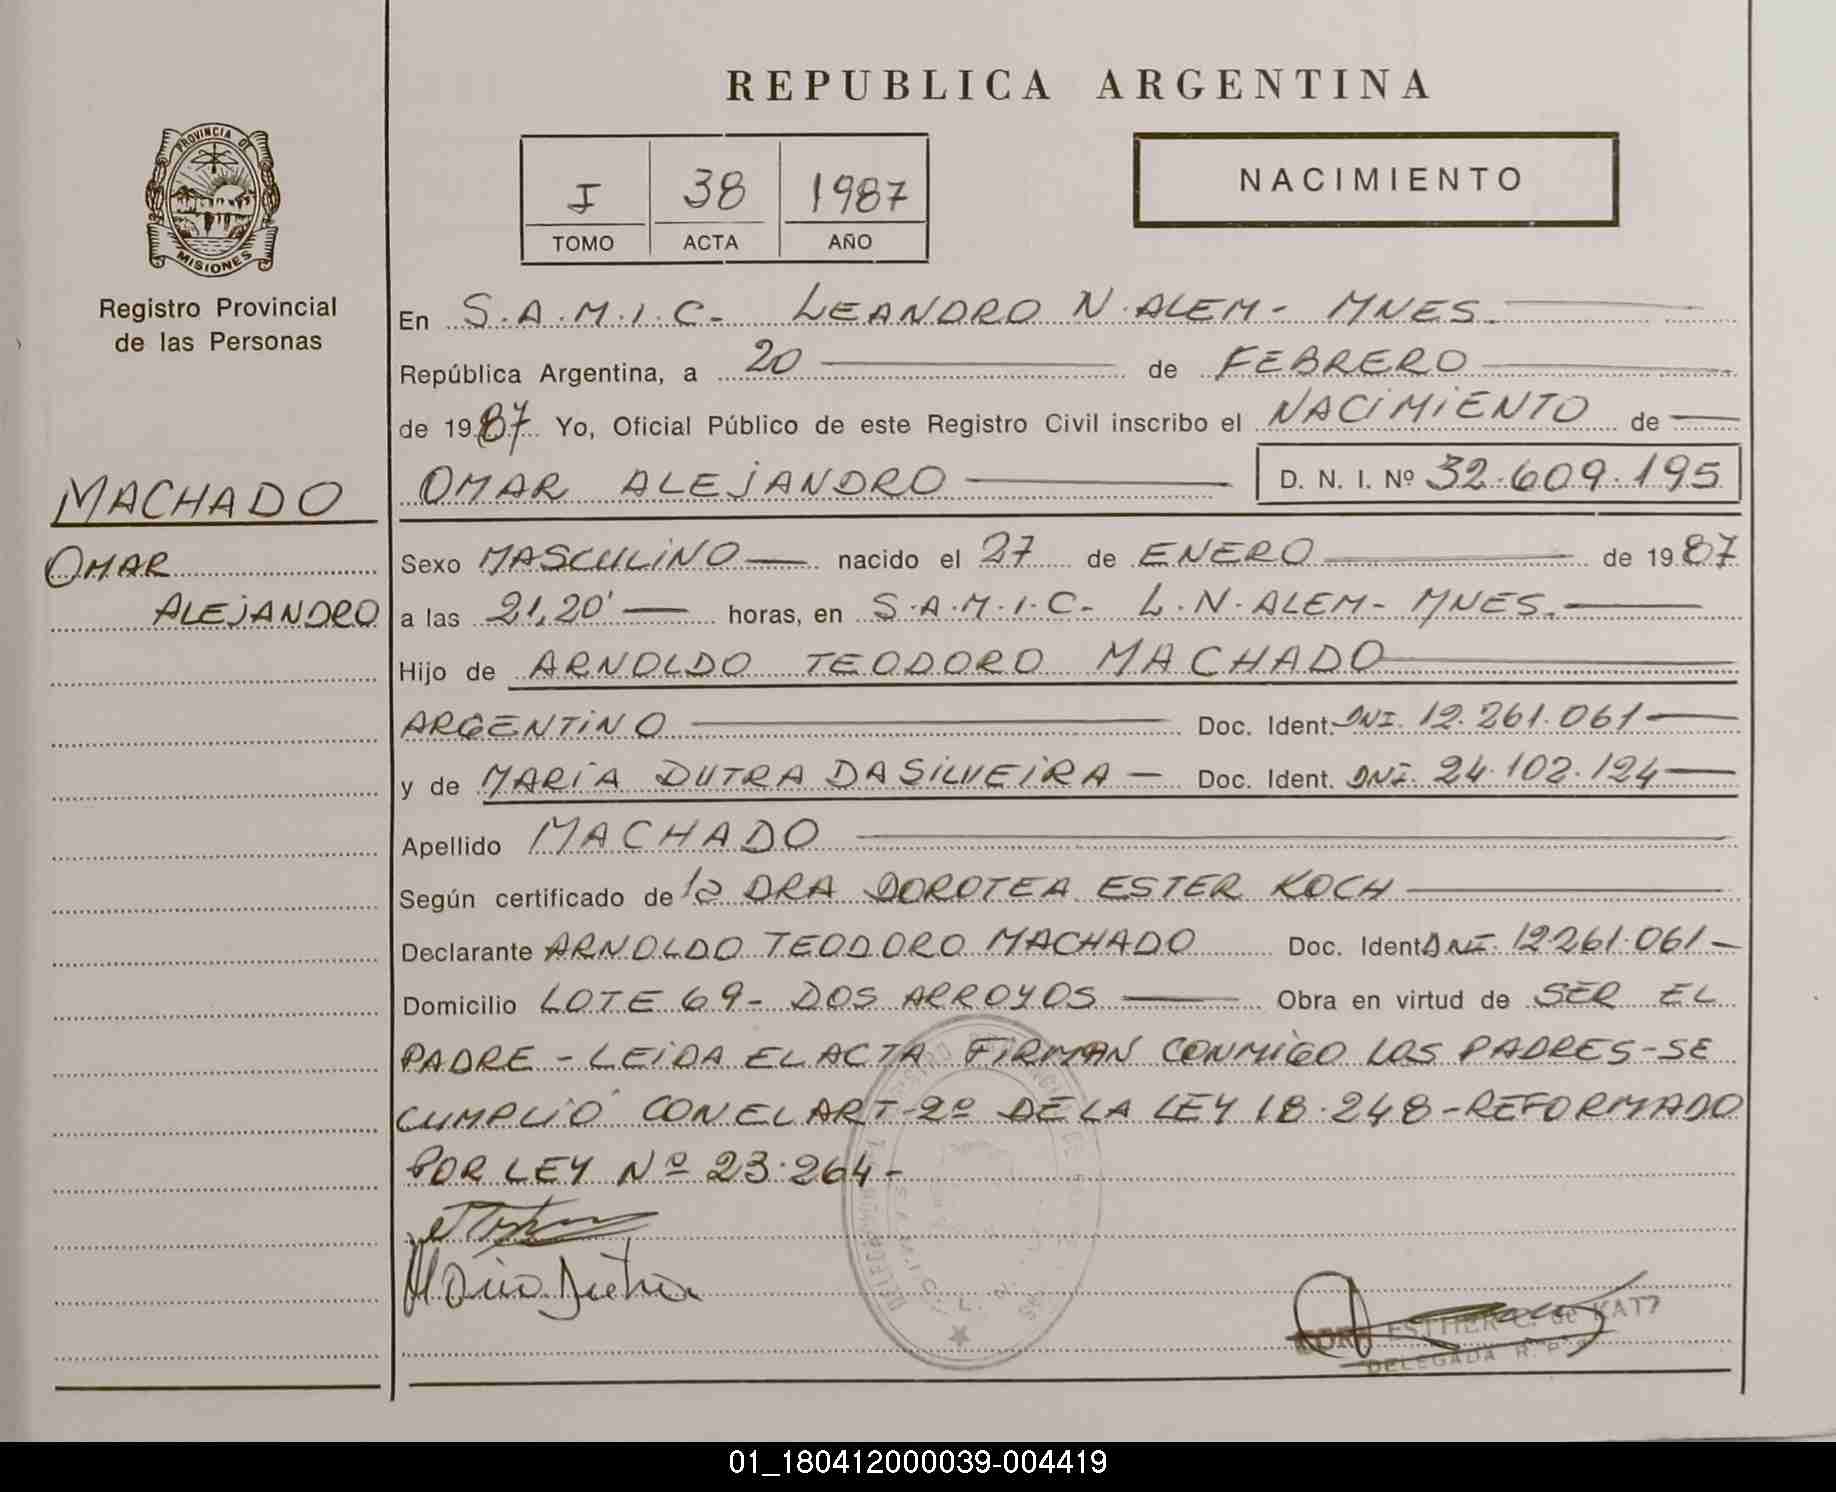 REPUBLICA ARGENTINA
PROVINCIA DE
MISIONES
Registro Provincial
de las Personas
I 38 1987
TOMO ACTA AÑO
NACIMIENTO
En S.A.M.I.C- LEANDRO N. ALEM- MNES.
República Argentina, a 20 de FEBRERO
de 1987 Yo, Oficial Público de este Registro Civil inscribo el NACIMIENTO de
OMAR ALEJANDRO D. N. I. Nº 32.609.195
MACHADO
OMAR
ALEJANDRO
Sexo MASCULINO nacido el 27 de ENERO de 1987
a las 21,20' horas, en S.A.M.I.C- L.N. ALEM- MNES.
Hijo de ARNOLDO TEODORO MACHADO
ARGENTINO Doc. Ident. DNI. 12.261.061
y de MARÍA DUTRA DASILVEIRA Doc. Ident. DNI. 24.102.124
Apellido MACHADO
Según certificado de la DRA DOROTEA ESTER KOCH
Declarante ARNOLDO TEODORO MACHADO Doc. Ident DNI. 12.261.061
Domicilio LOTE 69- DOS ARROYOS Obra en virtud de SER EL
PADRE - LEIDA EL ACTA FIRMAN CONMIGO LOS PADRES- SE
CUMPLIÓ CON EL ART- 2º DE LA LEY 18.248- REFORMADO
POR LEY Nº 23.264-
María Dutra
ESTHER C. de KATZ
DELEGADA R. P.
01_180412000039-004419